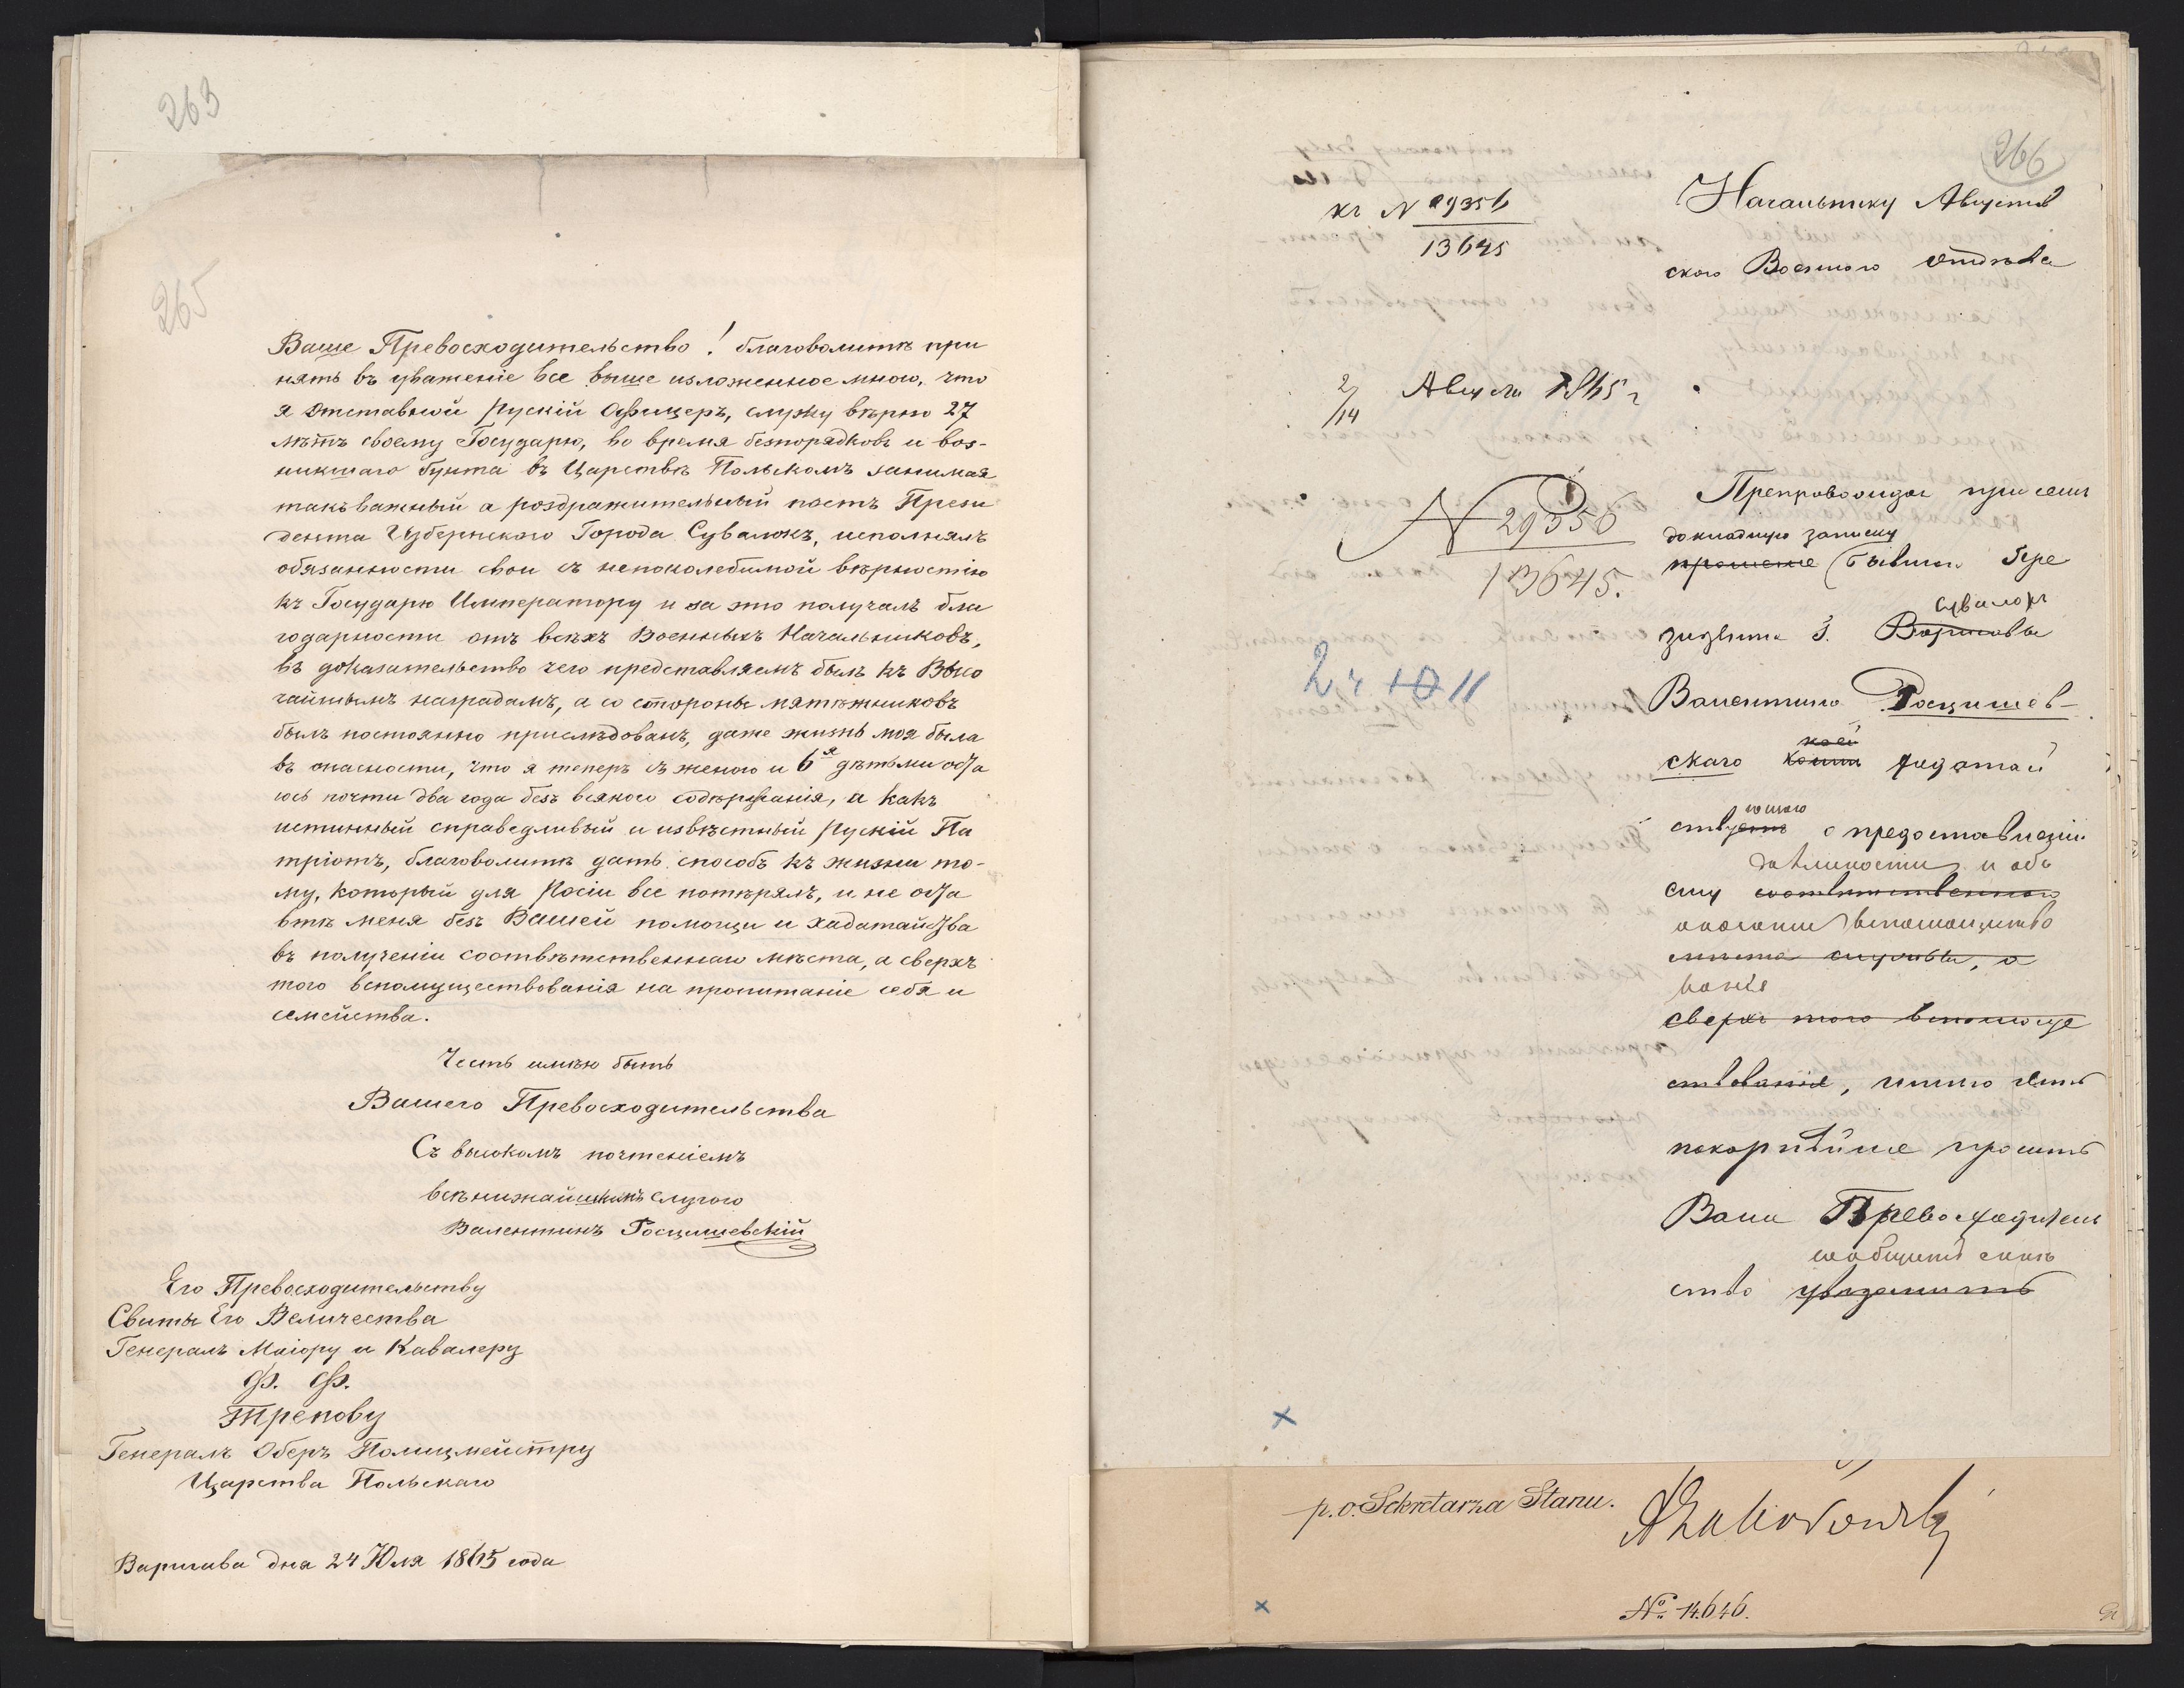 263
265
Ваше Превосходительство! благоволитѣ при
нять въ уваженіе все выше изложенное мною, что
я отставной рускій Офицеръ, служу вѣрно 27
лѣтъ своему Государю, во время безпорядковъ и воз-
никшаго бунта въ Царствѣ Польскомъ занимая
такъ важный а роздражительный постъ Прези
дента Губернского Города Сувалокъ, исполнялъ
обязанности свои съ непоколебимой вѣрностію
къ Государю Императору и за это получалъ бла
годарности отъ всѣхъ Военныхъ Начальниковъ,
въ доказательство чего представляемъ былъ къ Высо
чайшымъ наградамъ, а со стороны мятѣжниковъ
былъ постоянно прислѣдованъ, даже жизнь моя была
въ опасности, что я теперъ съ женою и 6я дѣтьми оста
юсь почти два года безъ всякого содѣржанія, а какъ
истинный справедливый и извѣстный рускій Па
тріотъ, благоволитѣ дать способъ къ жизни то-
му, который для Росіи все потѣрялъ, и не оста
втѣ меня безъ Вашей помощи и хадатайства
въ полученіи соотвѣтственнаго мѣста, а сверхъ
того вспомуществованія на пропитаніе себя и
семейства.
Честь имѣю быть
Вашего Превосходительства
Съ высокомъ почтеніемъ
всѣнижайшимъ слугою
Валентинъ Госцишевскій
Его Превосходительству
Свиты Его Величества
Генералъ Маіору и Кавалеру
Ф. Ф.
Трепову
Генералъ Оберъ Полицмейстру
Царства Польскаго
Варшава дня 24 Юля 1865 года
266
къ N 29356
13645
Начальнику Августов
ского Военного Отдѣла
2/14 Августа 1865 г
N 29356
13645.
2ч 10 11
Препровождая при семъ
докладную записку
прошеніе бывшаго Пре
Сувалокъ
зидента г. Варшавы
Валентина Госцишев-
скаго коей ходатай
ствуетъ о предоставленіи
должности и объ
ему соотвѣтственного
оказаніи вспомощество
мѣста службы, а
ванія
сверхъ того вспомоще
ствованія, имѣю честь
покорнѣйше просить
Ваше Превосходитель
сообщить
ство увѣдомить
p.o. Sekretarza Stanu.
No 14.646.